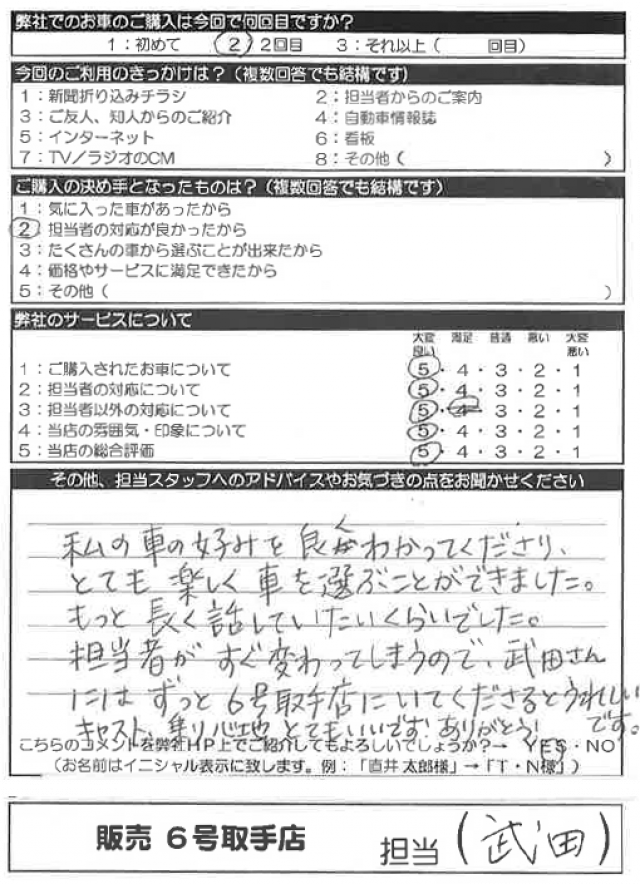 弊社でのお車のご購入は今回で何回目ですか？
1：初めて　2：2回目　3：それ以上（　　回目）
今回のご利用のきっかけは？（複数回答でも結構です）
1：新聞折り込みチラシ　2：担当者からのご案内
3：ご友人、知人からのご紹介　4：自動車情報誌
5：インターネット　6：看板
7：TV／ラジオのCM　8：その他（　　）
ご購入の決め手となったものは？（複数回答でも結構です）
1：気に入った車があったから
2：担当者の対応が良かったから
3：たくさんの車から選ぶことが出来たから
4：価格やサービスに満足できたから
5：その他（　　）
弊社のサービスについて
大変良い　満足　普通　悪い　大変悪い
1：ご購入されたお車について　5・4・3・2・1
2：担当者の対応について　5・4・3・2・1
3：担当者以外の対応について　5・4・3・2・1
4：当店の雰囲気・印象について　5・4・3・2・1
5：当店の総合評価　5・4・3・2・1
その他、担当スタッフへのアドバイスやお気づきの点をお聞かせください
私の車の好みを良くわかってくださり、
とても楽しく車を選ぶことができました。
もっと長く話していたいくらいでした。
担当者がすぐ変わってしまうので、武田さん
にはずっと6号取手店にいてくださるとうれしい
です。
キャスト、乗り心地とてもいいです！ありがとう！
こちらのコメントを弊社HP上でご紹介してもよろしいでしょうか？→　YES・NO
（お名前はイニシャル表示に致します。例：「直井 太郎様」→「T・N様」）
販売 6号取手店　担当（武田）